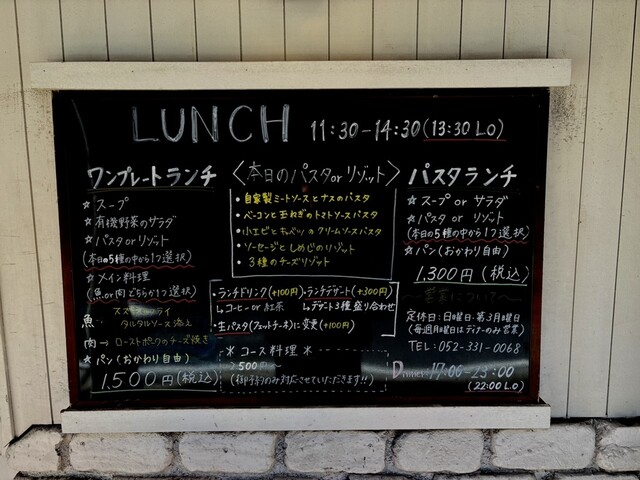 LUNCH 11:30-14:30(13:30 LO)
ワンプレートランチ
☆ スープ
☆ 有機野菜のサラダ
☆ パスタorリゾット
(本日の5種の中から1つ選択)
☆ メイン料理
(魚or肉どちらか1つ選択)
魚→
タルタルソース添え
肉→ ローストポークのチーズ焼き
☆ パン(おかわり自由)
1500円(税込)
〈本日のパスタorリゾット〉
・自家製ミートソースとナスのパスタ
・ベーコンと玉ねぎのトマトソースパスタ
・小エビとキャベツのクリームソースパスタ
・ソーセージとしめじのリゾット
・3種のチーズリゾット
・ランチドリンク(+100円)
↳コーヒーor紅茶
・ランチデザート(+300円)
↳デザート3種盛り合わせ
・生パスタ(フェットチーネ)に変更(+100円)
※ コース料理 ※
2,500円〜
(御予約のみ対応させていただきます!!)
パスタランチ
☆ スープ or サラダ
☆ パスタ or リゾット
(本日の5種の中から1つ選択)
☆ パン(おかわり自由)
1,300円(税込)
〜営業について〜
定休日:日曜日・第3月曜日
(毎週月曜日はディナーのみ営業)
TEL:052-331-0068
Dinner:17:00-23:00
(22:00 L.O)